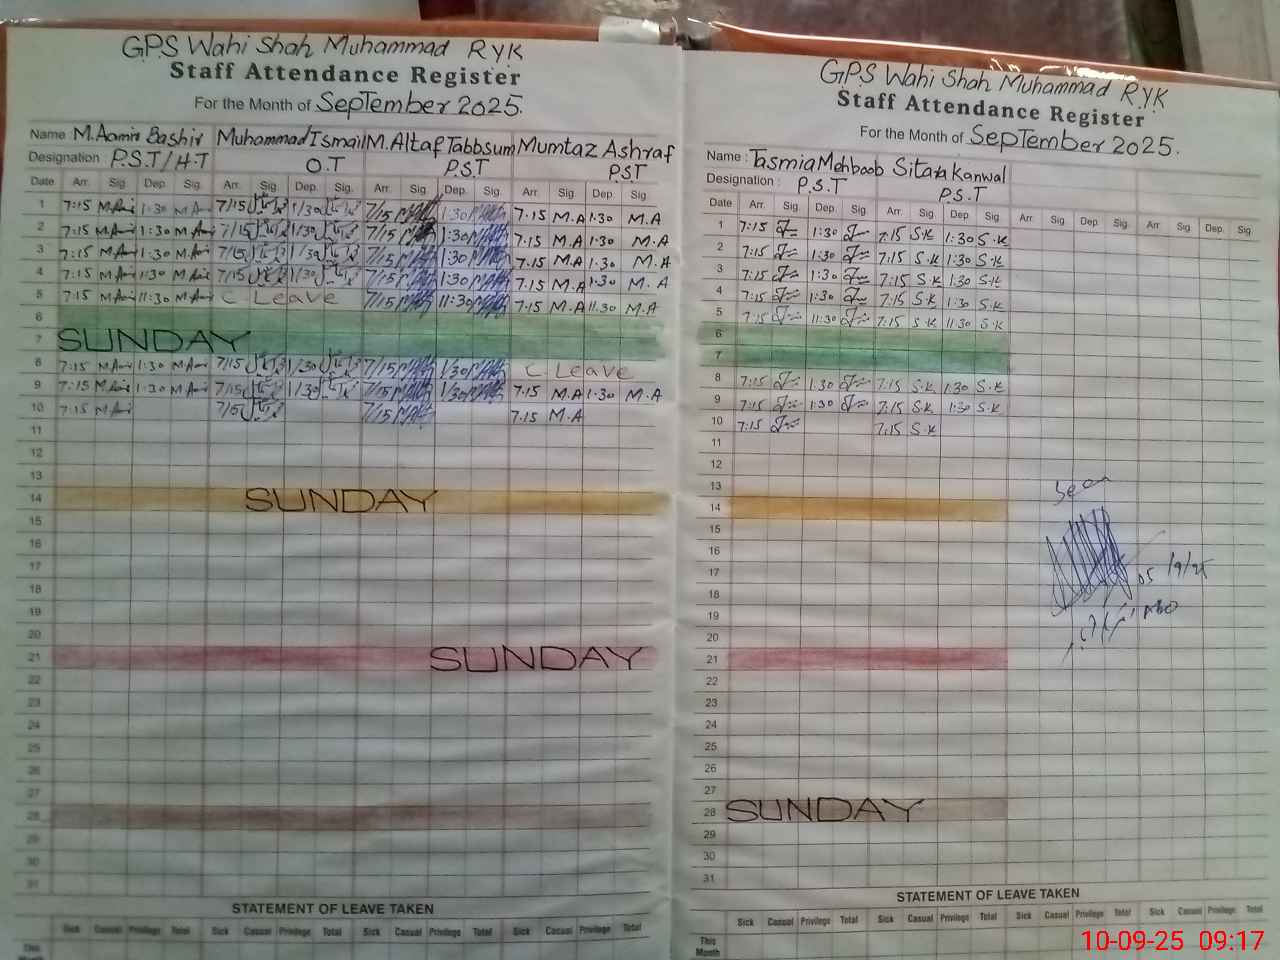 GPS Wahi Shah Muhammad RYK
Staff Attendance Register
For the Month of September 2025.
Name : M.Aamir Bashir Muhammad Ismail M.Altaf Tabbsum Mumtaz Ashraf
Designation : P.S.T/H.T O.T P.S.T PST
Date Arr. Sig. Dep. Sig. Arr. Sig. Dep. Sig. Arr. Sig. Dep. Sig. Arr. Sig. Dep. Sig.
1 7:15 1:30 7/15 1/30 7/15 1:30 7:15 M.A 1:30 M.A
2 7:15 1:30 7/15 1/30 7/15 1:30 7:15 M.A 1:30 M.A
3 7:15 1:30 7/15 1/30 7/15 1:30 7:15 M.A 1:30 M.A
4 7:15 1:30 7/15 1/30 7/15 1:30 7:15 M.A 1:30 M.A
5 7:15 11:30 C Leave 7/15 11:30 7:15 M.A 11:30 M.A
6
7 SUNDAY
8 7:15 1:30 7/15 1/30 7/15 1/30 C Leave
9 7:15 1:30 7/15 1/30 7/15 1/30 7:15 M.A 1:30 M.A
10 7:15 7/15 7/15 7:15 M.A
11
12
13
14 SUNDAY
15
16
17
18
19
20
21 SUNDAY
22
23
24
25
26
27
28
29
30
31
STATEMENT OF LEAVE TAKEN
Sick Casual Privilege Total Sick Casual Privilege Total Sick Casual Privilege Total Sick Casual Privilege Total
This
Month
GPS Wahi Shah Muhammad RYK
Staff Attendance Register
For the Month of September 2025.
Name : Tasmia Mehboob Sitara Kanwal
Designation : P.S.T P.S.T
Date Arr. Sig. Dep. Sig. Arr. Sig. Dep. Sig. Arr. Sig. Dep. Sig. Arr Sig. Dep. Sig
1 7:15 1:30 7:15 S.K 1:30 S.K
2 7:15 1:30 7:15 S.K 1:30 S.K
3 7:15 1:30 7:15 S.K 1:30 S.K
4 7:15 1:30 7:15 S.K 1:30 S.K
5 7:15 11:30 7:15 S.K 11:30 S.K
6
7
8 7:15 1:30 7:15 S.K 1:30 S.K
9 7:15 1:30 7:15 S.K 1:30 S.K
10 7:15 7:15 S.K
11
12
13
14
15
16
17
18
19
20
21
22
23
24
25
26
27
28 SUNDAY
29
30
31
Seen
05/9/25
STATEMENT OF LEAVE TAKEN
Sick Casual Privilege Total Sick Casual Privilege Total Sick Casual Privilege Total Sick Casual Privilege Total
This
Month
10-09-25 09:17